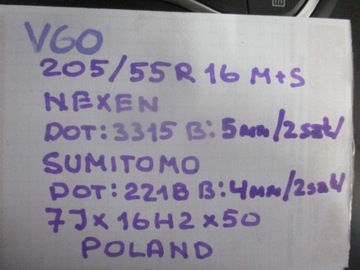 VGO
205/55R 16 M+S
NEXEN
DOT:3315 B:5mm/2szt/
SUMITOMO
DOT:2218 B:4mm/2szt/
7Jx16H2x50
POLAND